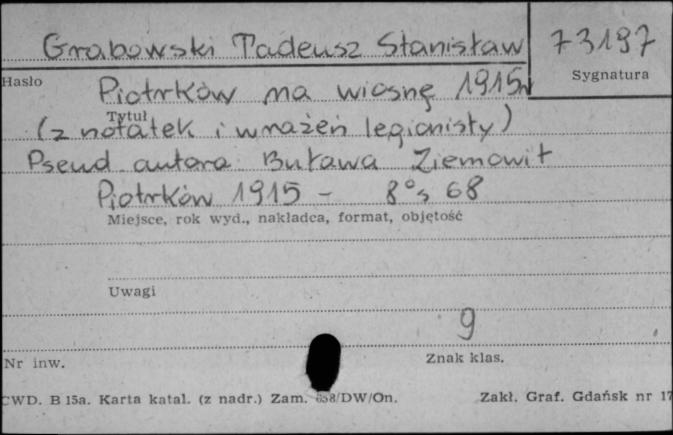 Grabowski Tadeusz Stanisław 73197
Hasło Sygnatura
Piotrków na wiosnę 1915 r
Tytuł
(z notatek i wrażeń legionisty)
Pseud autora Buława Ziemowit
Piotrków 1915 - 8°, s 68
Miejsce, rok wyd., nakładca, format, objętość
Uwagi
9
Nr inw. Znak klas.
CWD. B 15a. Karta katal. (z nadr.) Zam. 658/DW/On. Zakł. Graf. Gdańsk nr 17